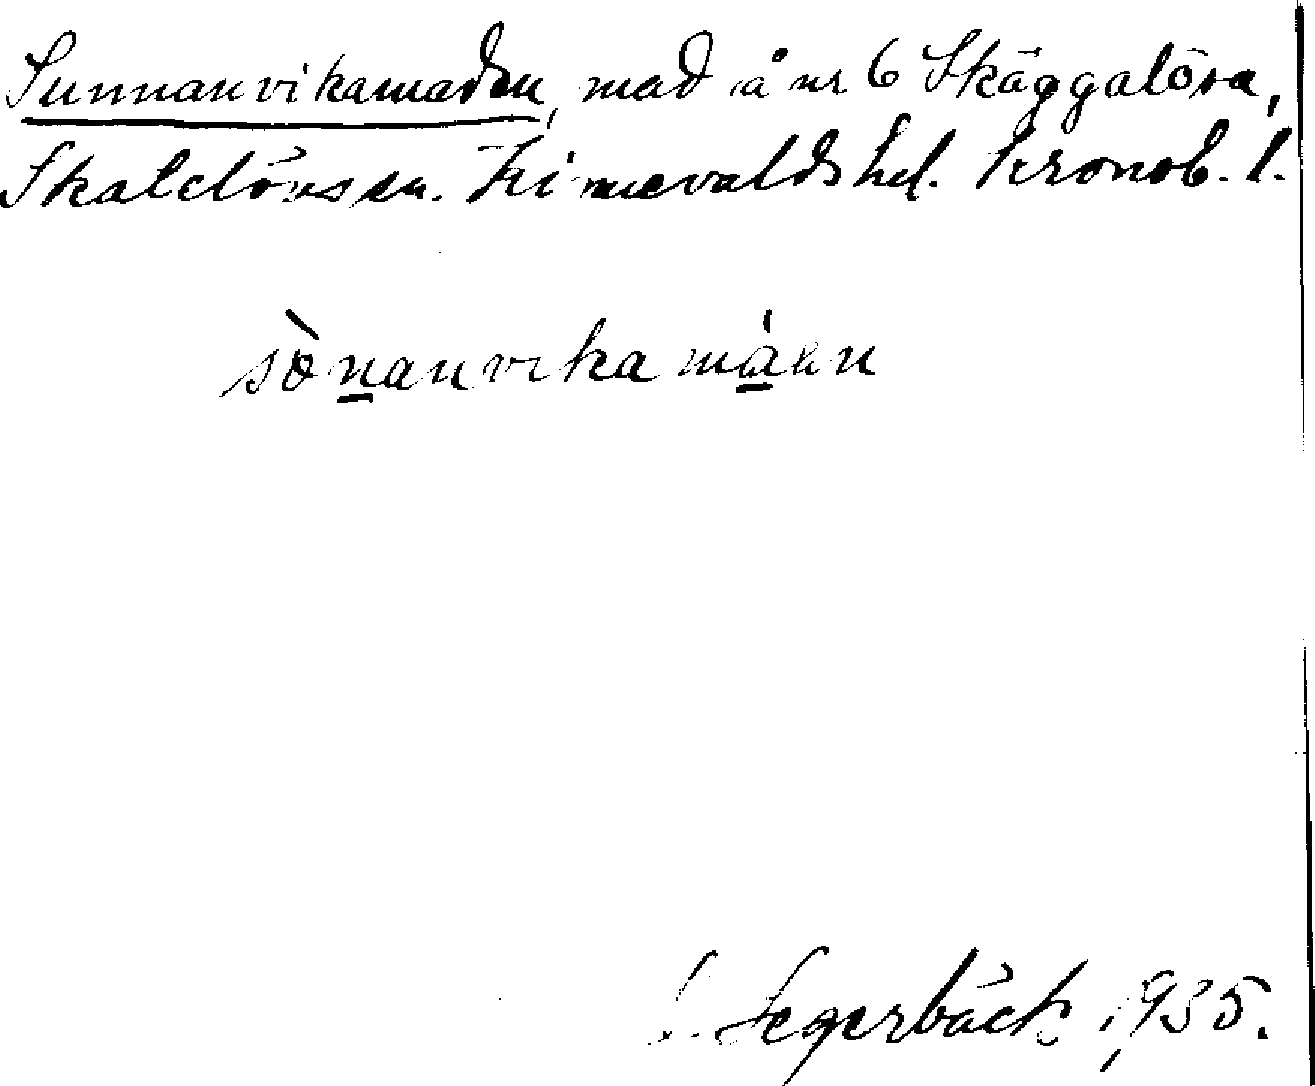 Sunnanvikamaden, mad å nr 6 Skäggalösa,
Skatelövs sn. Kinnevalds hd. Kronob. l.
sònanvikamáen
S. Segerbäck 1935.